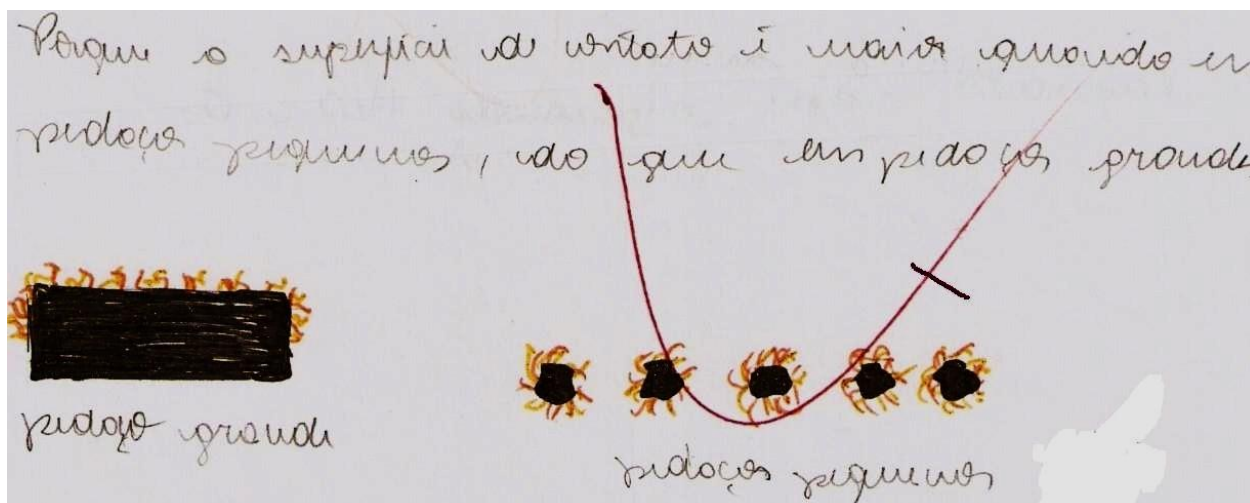 Porque a superfície de contato é maior quando em
pedaços pequenos, do que em pedaços grande
pedaço grande
pedaços pequenos